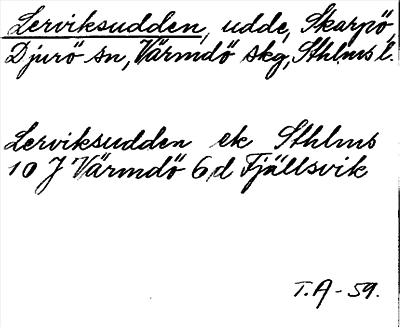 Lerviksudden, udde, Skarpö,
Djurö sn, Värmdö skg, Sthlms l.
Lerviksudden ek Sthlms
10 J Värmdö 6 d Fjällsvik
T.A-59.